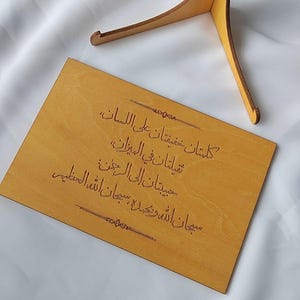 كلمتان خفيفتان على اللسان،
ثقيلتان في الميزان،
حبيبتان إلى الرحمن:
سبحان الله وبحمده، سبحان الله العظيم